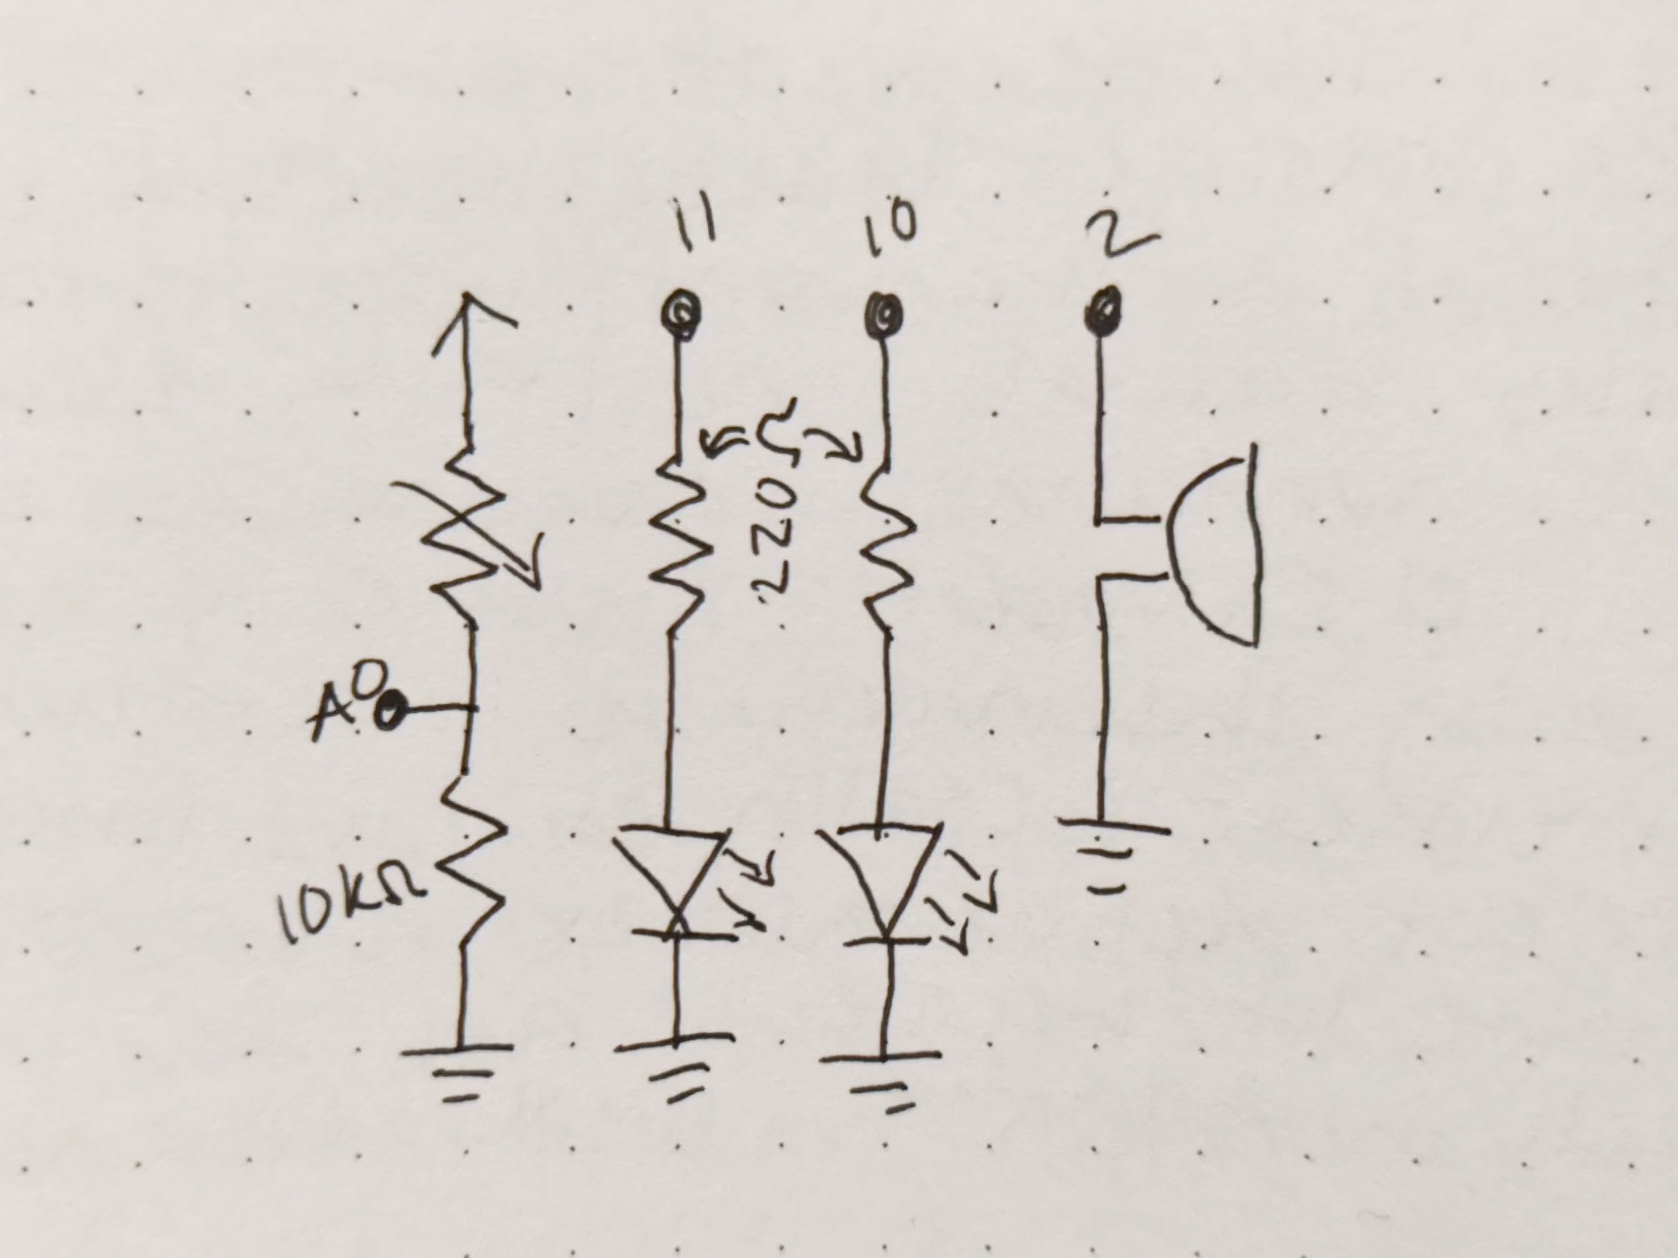 11
10
2
220Ω
A0
10KΩ